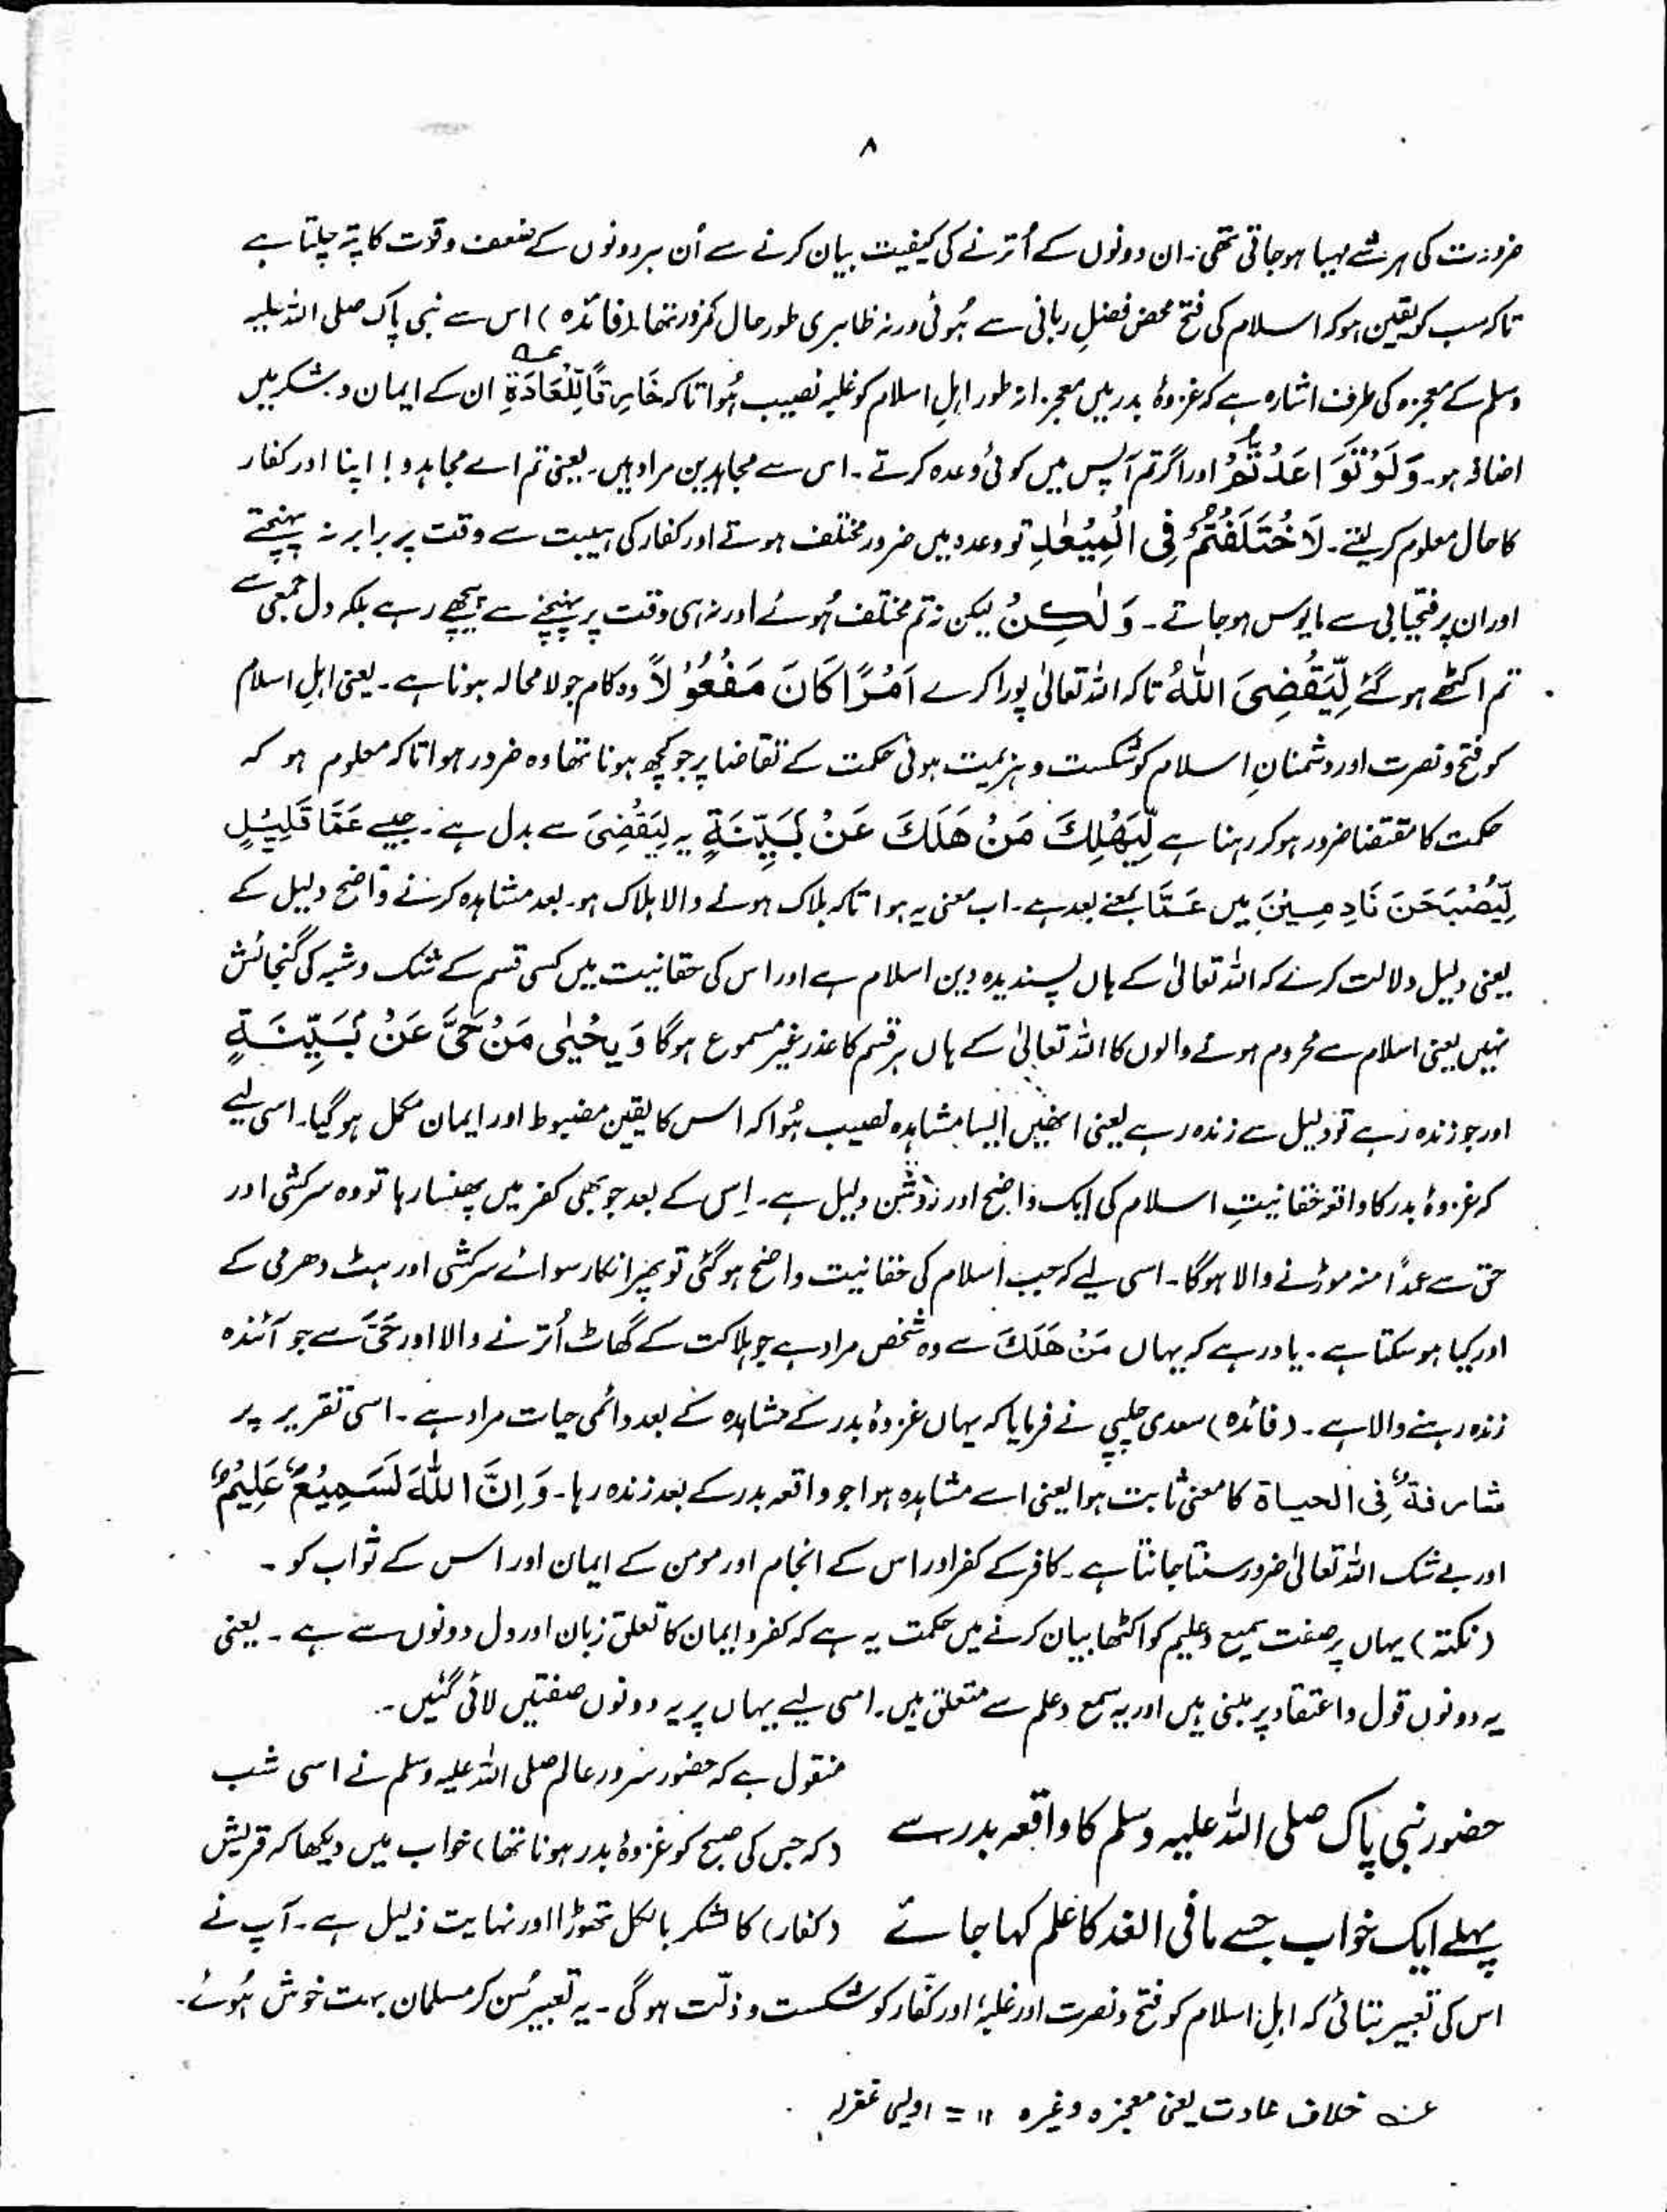 ۸
ضرورت کی ہر شے مہیا ہو جاتی تھی۔ ان دونوں کے اُترنے کی کیفیت بیان کرنے سے اُن ہر دونوں کے ضعف و قوت کا پتہ چلتا ہے
تاکہ سب کو یقین ہو کہ اسلام کی فتح محض فضلِ ربانی سے ہُوئی ورنہ ظاہری طور حال کمزور تھا۔ (فائدہ) اس سے نبی پاک صلی اللہ علیہ
وسلم کے معجزہ کی طرف اشارہ ہے کہ غزوۂ بدر میں معجزانہ طور اہلِ اسلام کو غلبہ نصیب ہُوا تاکہ خَارِقًا لِّلْعَادَةِ عہ ان کے ایمان و شکر میں
اضافہ ہو۔ وَلَوْ تَوَاعَدْتُّمْ اور اگر تم آپس میں کوئی وعدہ کرتے۔ اس سے مجاہدین مراد ہیں۔ یعنی تم اے مجاہدو! اپنا اور کفار
کا حال معلوم کر لیتے۔ لَاخْتَلَفْتُمْ فِی الْمِیْعٰدِ تو وعدہ میں ضرور مختلف ہوتے اور کفار کی ہیبت سے وقت پر برابر نہ پہنچتے
اور ان پر فتحیابی سے مایوس ہو جاتے۔ وَلٰکِنْ لیکن نہ تم مختلف ہُوئے اور نہ ہی وقت پر پہنچنے سے پیچھے رہے بلکہ دل جمعی سے
تم اکٹھے ہو گئے لِّیَقْضِیَ اللّٰهُ تاکہ اللہ تعالیٰ پورا کرے اَمْرًا کَانَ مَفْعُوْلًا وہ کام جو لامحالہ ہونا ہے۔ یعنی اہلِ اسلام
کو فتح و نصرت اور دشمنانِ اسلام کو شکست و ہزیمت ہوئی حکمت کے تقاضا پر جو کچھ ہونا تھا وہ ضرور ہوا تاکہ معلوم ہو کہ
حکمت کا مقتضا ضرور ہو کر رہنا ہے لِّیَهْلِكَ مَنْ هَلَكَ عَنْ بَیِّنَةٍ یہ لِیَقْضِیَ سے بدل ہے۔ جیسے عَمَّا قَلِیْلٍ
لِّیُصْبِحَنَّ نَادِمِیْنَ میں عَمَّا بمعنے بعد ہے۔ اب معنی یہ ہوا تاکہ ہلاک ہونے والا ہلاک ہو۔ بعد مشاہدہ کرنے واضح دلیل کے
یعنی دلیل دلالت کرنے کہ اللہ تعالیٰ کے ہاں پسندیدہ دین اسلام ہے اور اس کی حقانیت میں کسی قسم کے شک و شبہ کی گنجائش
نہیں یعنی اسلام سے محروم ہونے والوں کا اللہ تعالیٰ کے ہاں ہر قسم کا عذر غیر مسموع ہوگا وَیَحْیٰی مَنْ حَیَّ عَنْ بَیِّنَةٍ
اور جو زندہ رہے تو دلیل سے زندہ رہے یعنی انھیں ایسا مشاہدہ نصیب ہُوا کہ اس کا یقین مضبوط اور ایمان مکمل ہو گیا۔ اسی لیے
کہ غزوۂ بدر کا واقعہ حقانیتِ اسلام کی ایک واضح اور روشن دلیل ہے۔ اِس کے بعد جو بھی کفر میں پھنسا رہا تو وہ سرکشی اور
حق سے عمداً منہ موڑنے والا ہوگا۔ اسی لیے کہ جب اسلام کی حقانیت واضح ہو گئی تو پھر انکار سوائے سرکشی اور ہٹ دھرمی کے
اور کیا ہو سکتا ہے۔ یاد رہے کہ یہاں مَنْ هَلَكَ سے وہ شخص مراد ہے جو ہلاکت کے گھاٹ اُترنے والا اور حَیَّ سے جو آئندہ
زندہ رہنے والا ہے۔ (فائدہ) سعدی چلپی نے فرمایا کہ یہاں غزوۂ بدر کے مشاہدہ کے بعد دائمی حیات مراد ہے۔ اسی تقریر پر
مشارفة فی الحیاة کا معنی ثابت ہوا یعنی اسے مشاہدہ ہوا جو واقعہ بدر کے بعد زندہ رہا۔ وَاِنَّ اللّٰهَ لَسَمِیْعٌ عَلِیْمٌ
اور بے شک اللہ تعالیٰ ضرور سنتا جانتا ہے۔ کافر کے کفر اور اس کے انجام اور مومن کے ایمان اور اس کے ثواب کو۔
(نکتہ) یہاں پر صفت سمیع و علیم کو اکٹھا بیان کرنے میں حکمت یہ ہے کہ کفر و ایمان کا تعلق زبان اور دل دونوں سے ہے۔ یعنی
یہ دونوں قول و اعتقاد پر مبنی ہیں اور یہ سمع و علم سے متعلق ہیں۔ اسی لیے یہاں پر یہ دونوں صفتیں لائی گئیں۔
حضور نبی پاک صلی اللہ علیہ وسلم کا واقعہ بدر سے
پہلے ایک خواب جسے ما فی الغد کا علم کہا جائے
منقول ہے کہ حضور سرور عالم صلی اللہ علیہ وسلم نے اسی شب
(کہ جس کی صبح کو غزوۂ بدر ہونا تھا) خواب میں دیکھا کہ قریش
(کفار) کا لشکر بالکل تھوڑا اور نہایت ذلیل ہے۔ آپ نے
اس کی تعبیر بتائی کہ اہلِ اسلام کو فتح و نصرت اور غلبۂ اور کفّار کو شکست و ذلّت ہوگی۔ یہ تعبیر سُن کر مسلمان بہت خوش ہُوئے۔
عہ خلاف عادت یعنی معجزہ وغیرہ ۱۱ = اویسی غفرلہ